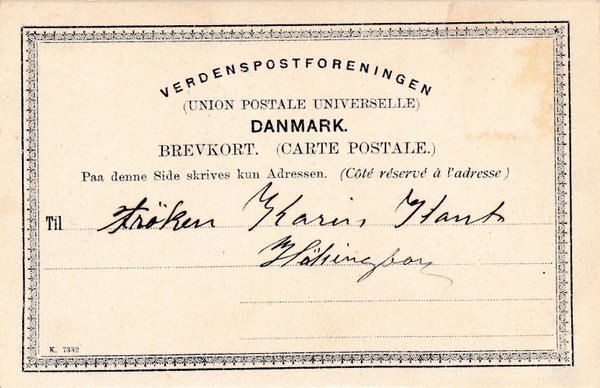 VERDENSPOSTFORENINGEN
(UNION POSTALE UNIVERSELLE)
DANMARK.
BREVKORT. (CARTE POSTALE.)
Paa denne Side skrives kun Adressen. (Côté réservé à l'adresse)
Til Frøken Karin
K. 7332